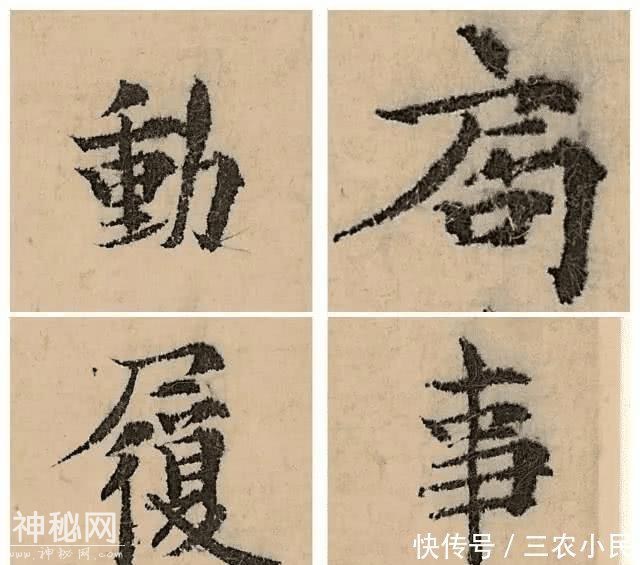 動
履 事
神秘网
www.神秘网.com
快传号 / 三农小民